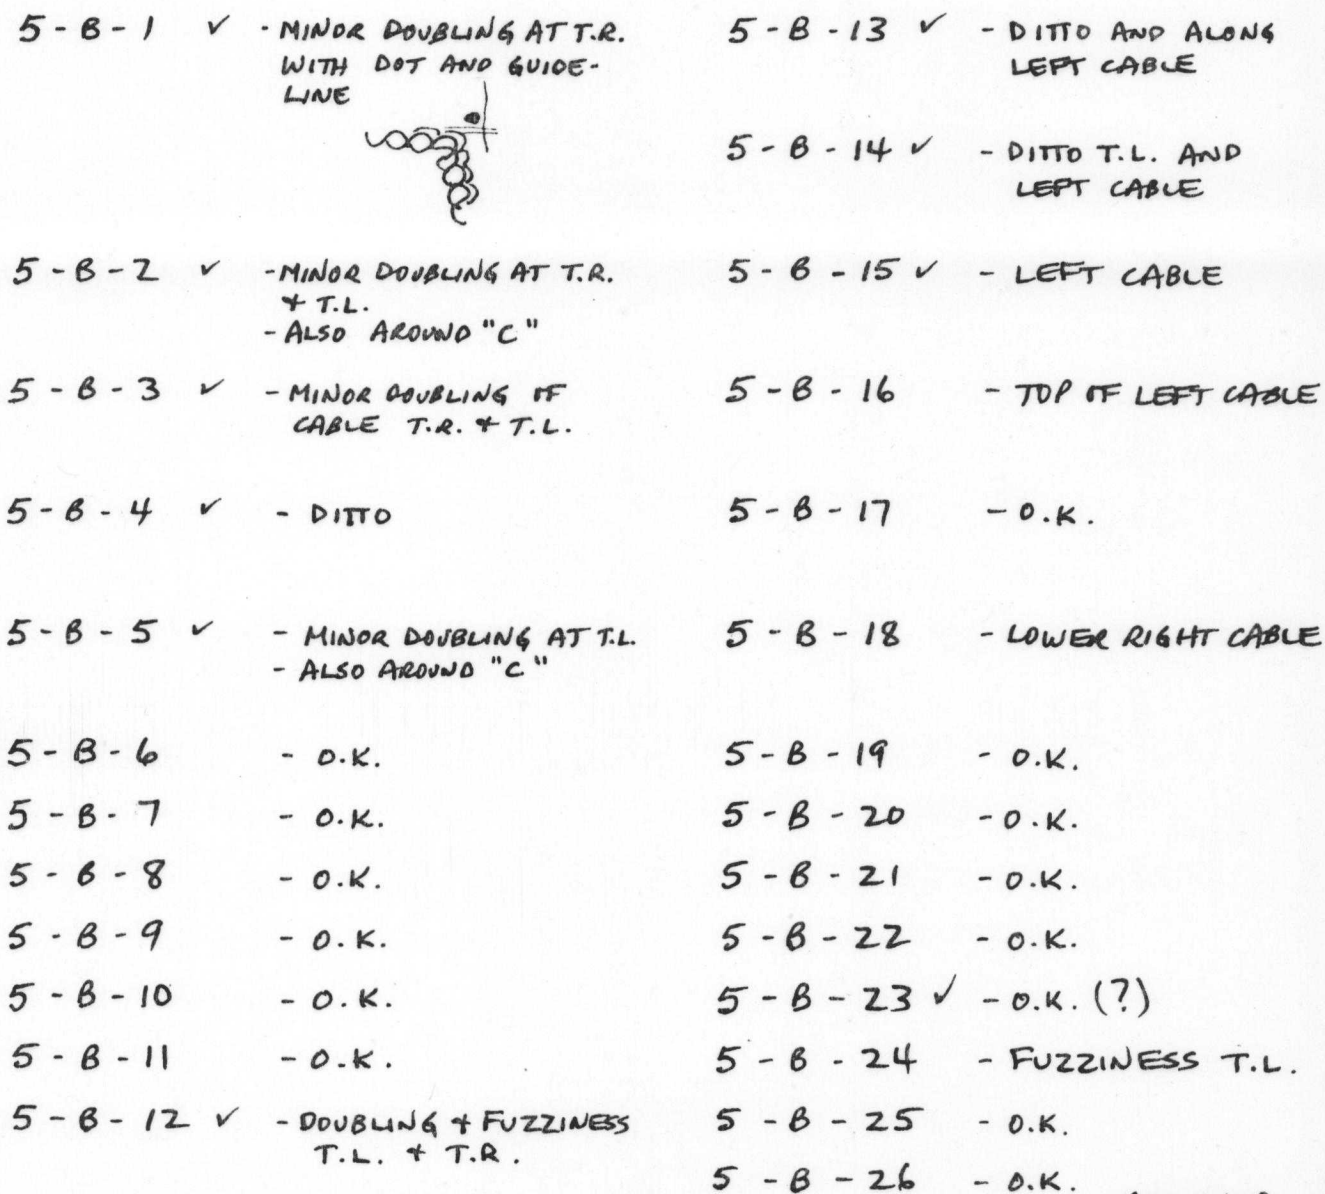 5-B-1 ✓ - MINOR DOUBLING AT T.R.
WITH DOT AND GUIDE-
LINE
5-B-2 ✓ - MINOR DOUBLING AT T.R.
& T.L.
- ALSO AROUND "C"
5-B-3 ✓ - MINOR DOUBLING OF
CABLE T.R. & T.L.
5-B-4 ✓ - DITTO
5-B-5 ✓ - MINOR DOUBLING AT T.L.
- ALSO AROUND "C"
5-B-6 - O.K.
5-B-7 - O.K.
5-B-8 - O.K.
5-B-9 - O.K.
5-B-10 - O.K.
5-B-11 - O.K.
5-B-12 ✓ - DOUBLING & FUZZINESS
T.L. & T.R.
5-B-13 ✓ - DITTO AND ALONG
LEFT CABLE
5-B-14 ✓ - DITTO T.L. AND
LEFT CABLE
5-B-15 ✓ - LEFT CABLE
5-B-16 - TOP OF LEFT CABLE
5-B-17 - O.K.
5-B-18 - LOWER RIGHT CABLE
5-B-19 - O.K.
5-B-20 - O.K.
5-B-21 - O.K.
5-B-22 - O.K.
5-B-23 ✓ - O.K. (?)
5-B-24 - FUZZINESS T.L.
5-B-25 - O.K.
5-B-26 - O.K.